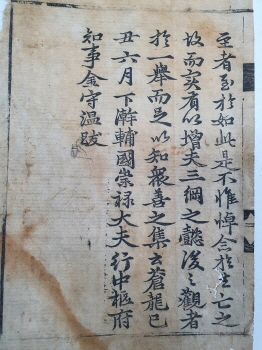 至者至於如此是不惟悼念於亡之
故而实有以增夫三綱之懿後之觀者
於一舉而足以知衆善之集云蒼龍己
丑六月下澣輔國崇禄大夫行中樞府
知事金守温跋